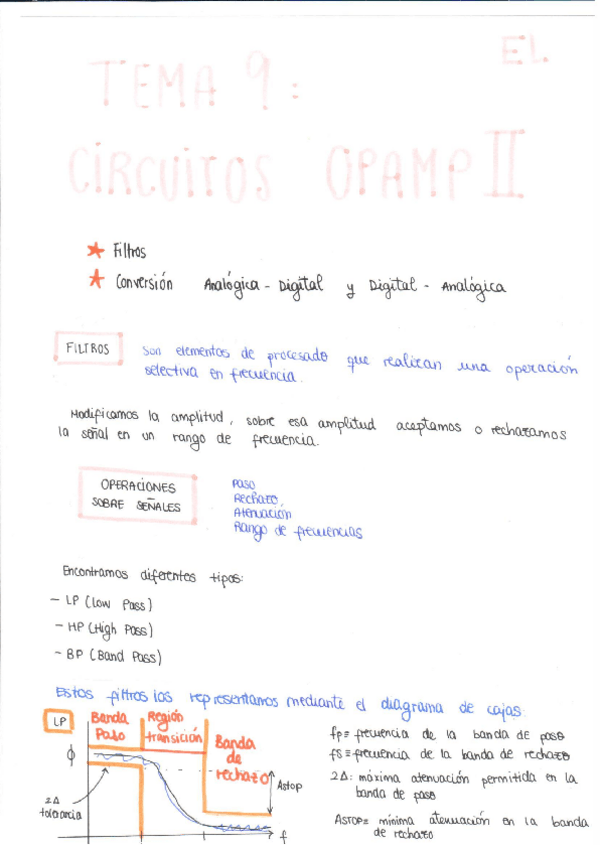 EL
TEMA 9:
CIRCUITOS OPAMP II
★ Filtros
★ Conversión Analógica - Digital y Digital - Analógica
FILTROS
Son elementos de procesado que realizan una operación
selectiva en frecuencia.
Modificamos la amplitud, sobre esa amplitud aceptamos o rechazamos
la señal en un rango de frecuencia.
OPERACIONES
SOBRE SEÑALES
Paso
Rechazo
Atenuación
Rango de frecuencias
Encontramos diferentes tipos:
- LP (Low Pass)
- HP (High Pass)
- BP (Band Pass)
Estos filtros los representamos mediante el diagrama de cajas:
LP
Banda
Paso
Región
transición
Banda
de
rechazo
ϕ
Astop
2Δ
tolerancia
f
fp≡ frecuencia de la banda de paso
fs≡ frecuencia de la banda de rechazo
2Δ: máxima atenuación permitida en la
banda de paso
ASTOP≡ mínima atenuación en la banda
de rechazo